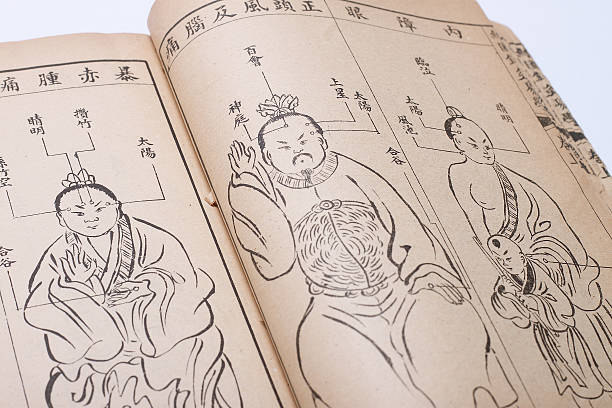 內障眼
臨泣
太陽
風池
合谷
正頭風及腦痛
百會
太陽
上星
神庭
暴赤腫痛
太陽
攢竹
睛明
竹空
合谷